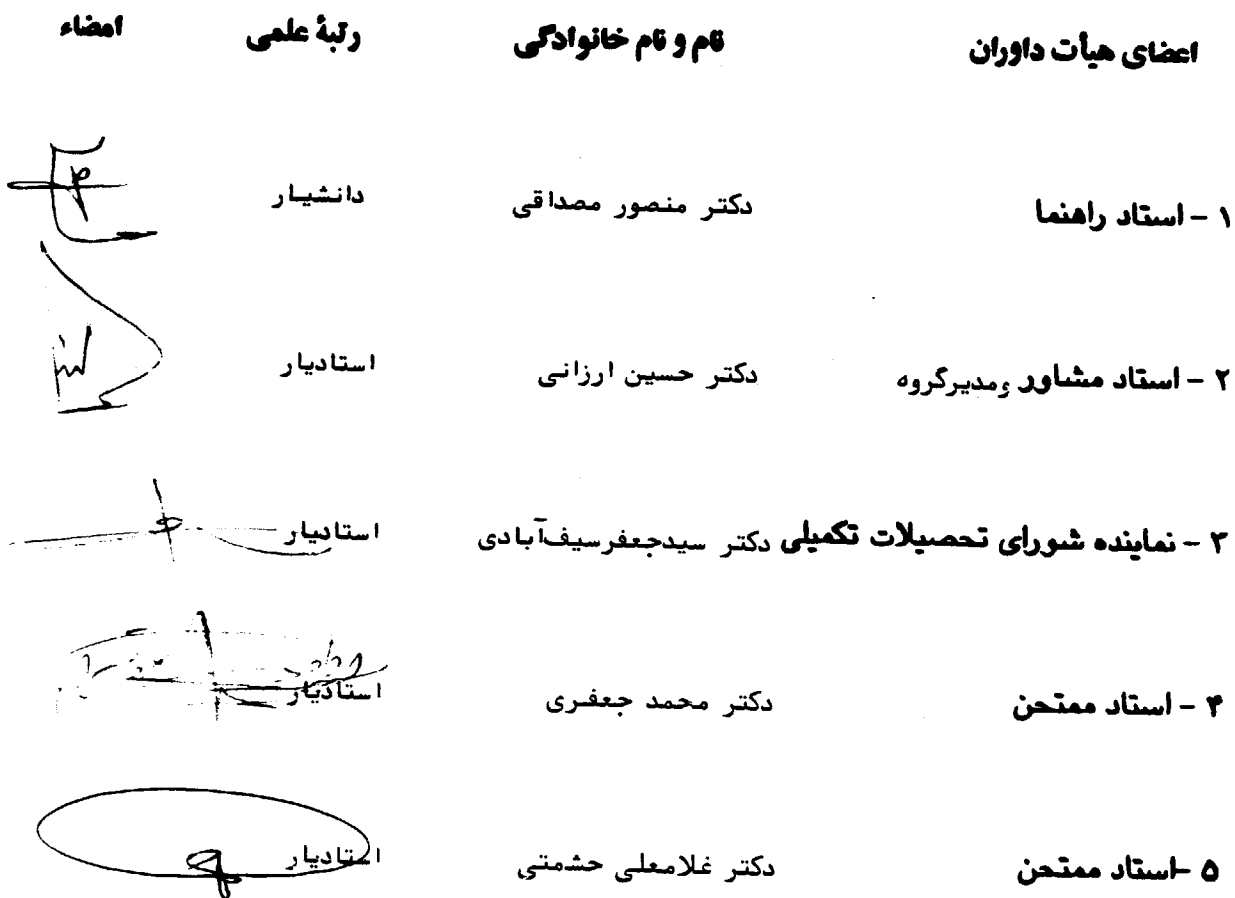 اعضای هیأت داوران نام و نام خانوادگی رتبهٔ علمی امضاء
۱ - استاد راهنما دکتر منصور مصداقی دانشیار
۲ - استاد مشاور ومدیرگروه دکتر حسین ارزانی استادیار
۳ - نماینده شورای تحصیلات تکمیلی دکتر سیدجعفرسیف‌آبادی استادیار
۴ - استاد ممتحن دکتر محمد جعفری استادیار
۵ -استاد ممتحن دکتر غلامعلی حشمتی استادیار